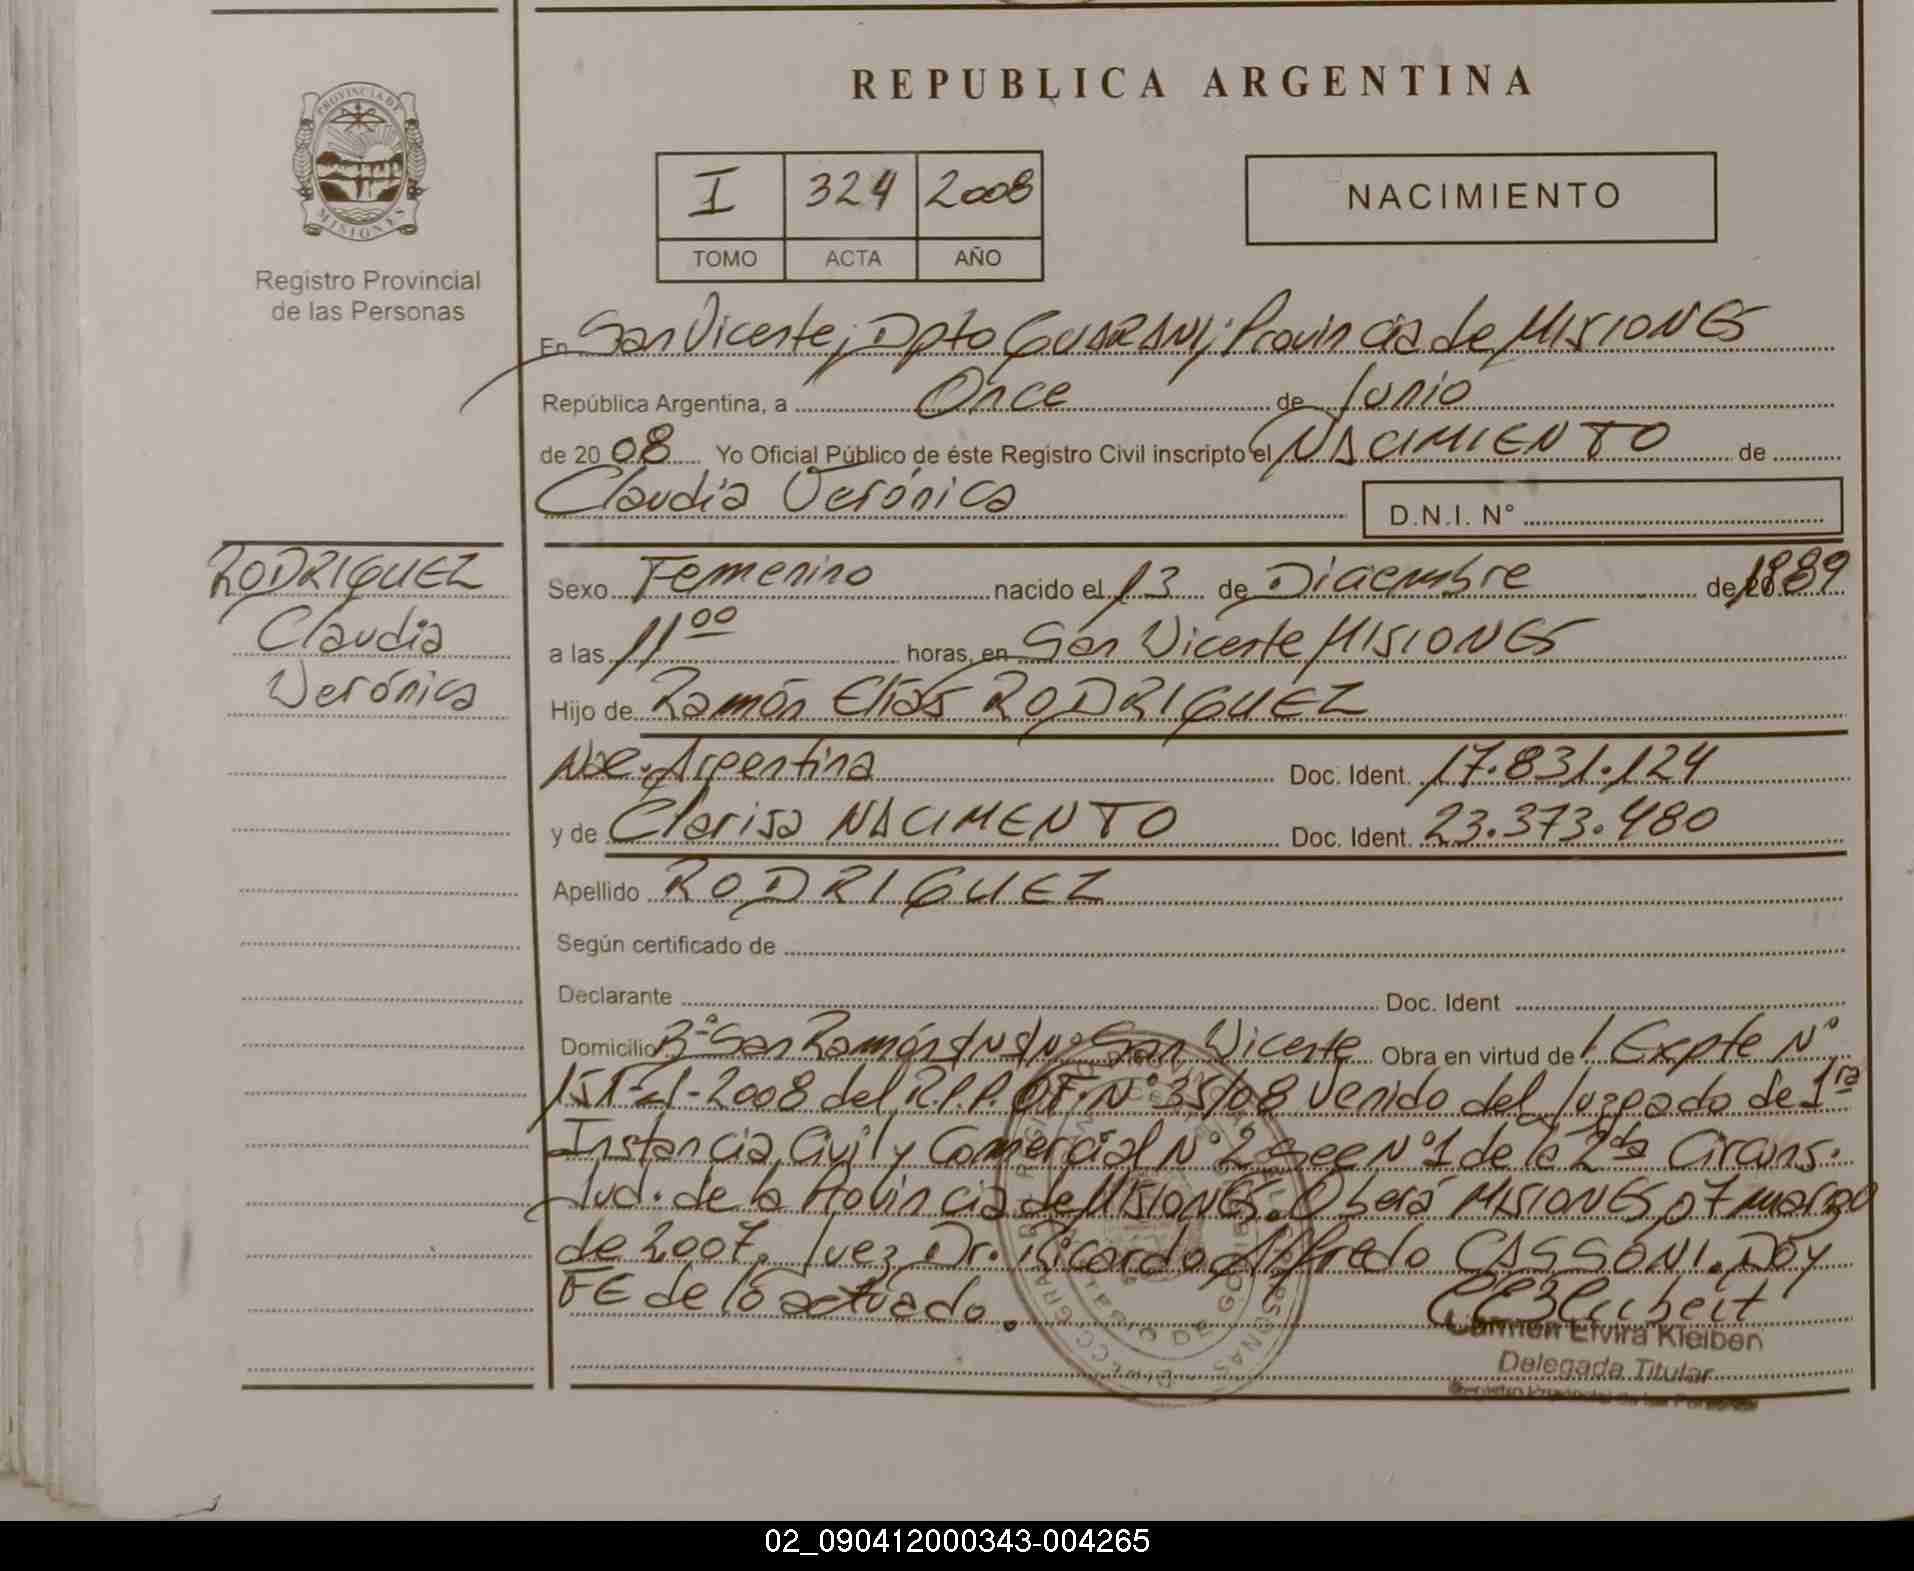 REPUBLICA ARGENTINA
PROVINCIA DE
MISIONES
Registro Provincial
de las Personas
I 324 2008
TOMO ACTA AÑO
NACIMIENTO
En San Vicente, Dpto GUARANI; Provincia de MISIONES
República Argentina, a Once de Junio
de 20 08 Yo Oficial Público de éste Registro Civil inscripto el NACIMIENTO de
Claudia Verónica
D.N.I. N°
RODRIGUEZ
Claudia
Verónica
Sexo Femenino nacido el 13 de Diciembre de 1989
a las 11 00 horas, en San Vicente MISIONES
Hijo de Ramón Elías RODRIGUEZ
Nac. Argentina Doc. Ident. 17.831.124
y de Clarisa NACIMENTO Doc. Ident. 23.373.480
Apellido RODRIGUEZ
Según certificado de
Declarante Doc. Ident
Domicilio B° San Ramón San Vicente Obra en virtud de Expte N°
2008 del R.P.P. OF. N° 35/08 venido del Juzgado de 1ra
Instancia Civil y Comercial N° 2 Sec N° 1 de la 2da Circuns.
Jud. de la Provincia de MISIONES. Oberá MISIONES 07 marzo
de 2007. Juez Dr. Ricardo Alfredo CASSONI. DOY
FE de lo actuado.
Carmen Elvira Kleiben
Delegada Titular
Registro Provincial de las Personas
02_090412000343-004265